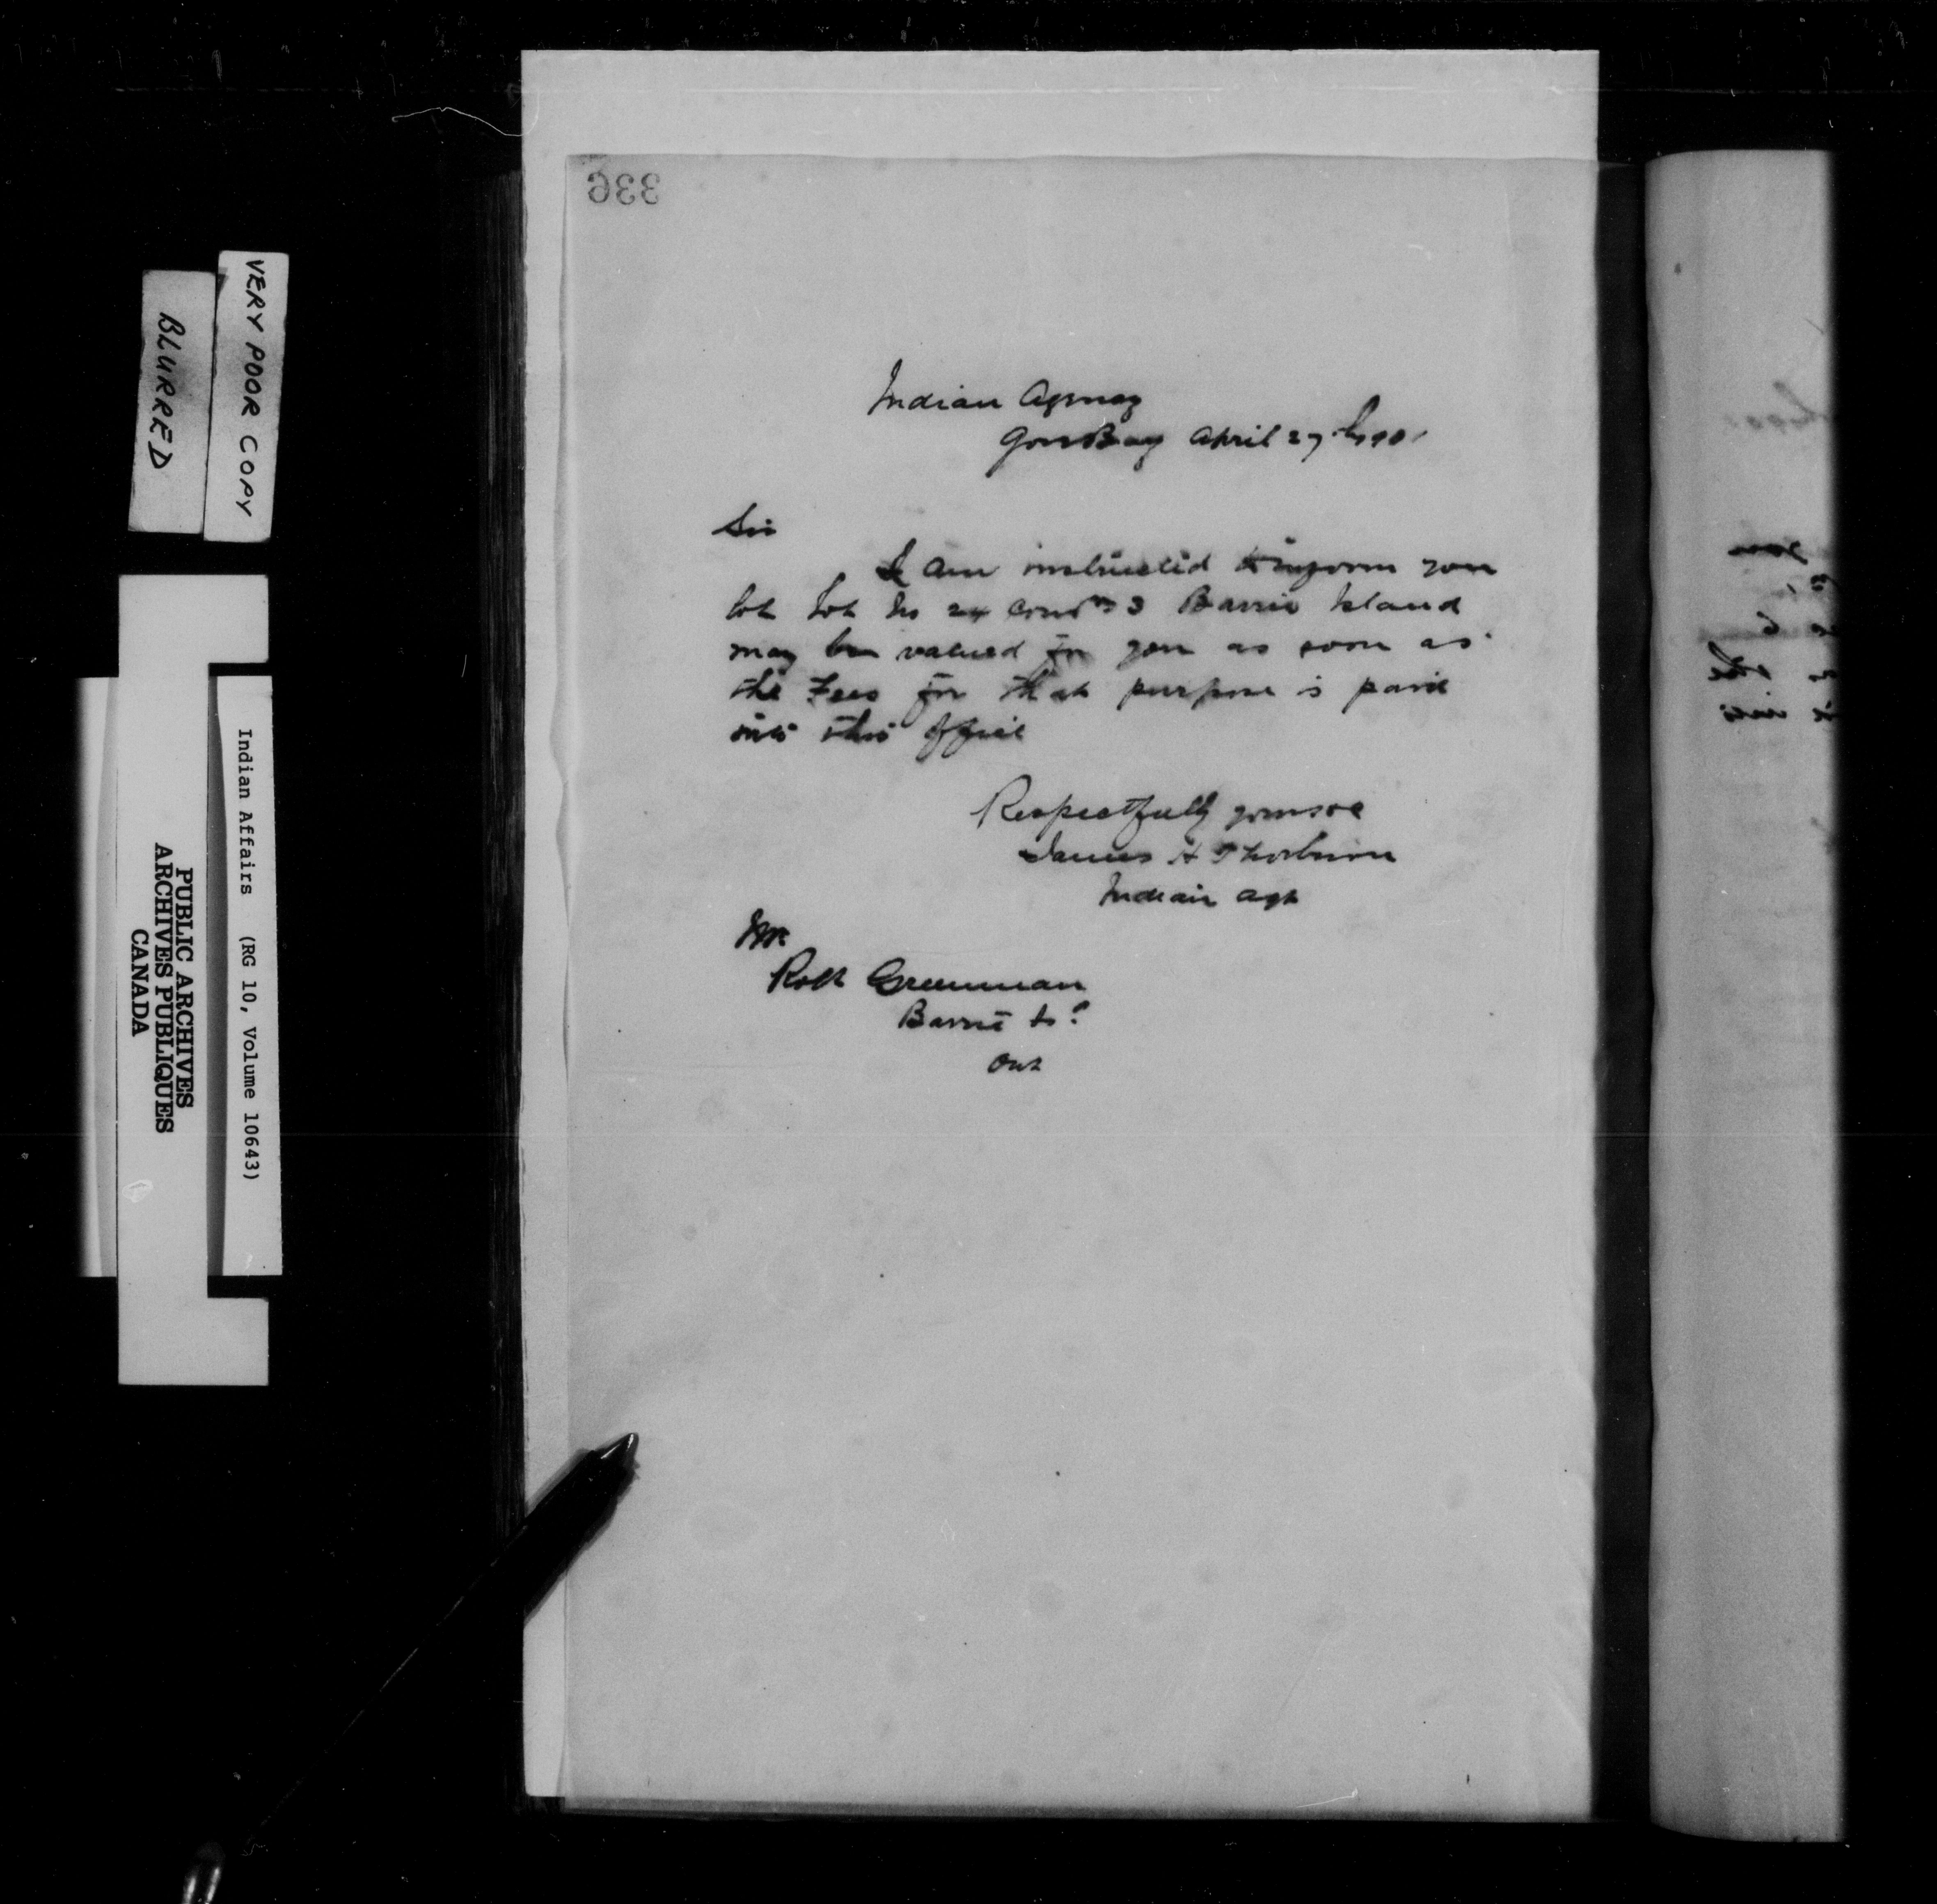 336
Indian Agency
Gore Bay April 27
Sir
I am instructed to inform you
Lot No 24 Con 3 Barrie Island
may be valued for you as soon as
the Fees for that purpose is paid
into this office
Respectfully yours
James H Thorburn
Indian Agt
Mr
Robt Greenman
Barrie Is?
Ont
VERY POOR COPY
BLURRED
Indian Affairs (RG 10, Volume 10643)
PUBLIC ARCHIVES
ARCHIVES PUBLIQUES
CANADA